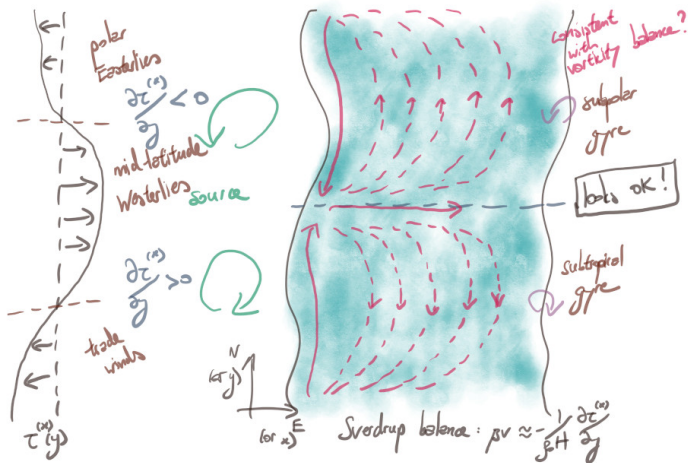 polar
Easterlies
∂τ⁽ˣ⁾/∂y < 0
mid-latitude
Westerlies
source
∂τ⁽ˣ⁾/∂y > 0
trade
winds
τ⁽ˣ⁾(y)
N
(or y)
E
(or x)
consistent
with
vorticity balance?
subpolar
gyre
looks OK!
subtropical
gyre
Sverdrup balance: βv ≈ -1/ρ₀H ∂τ⁽ˣ⁾/∂y